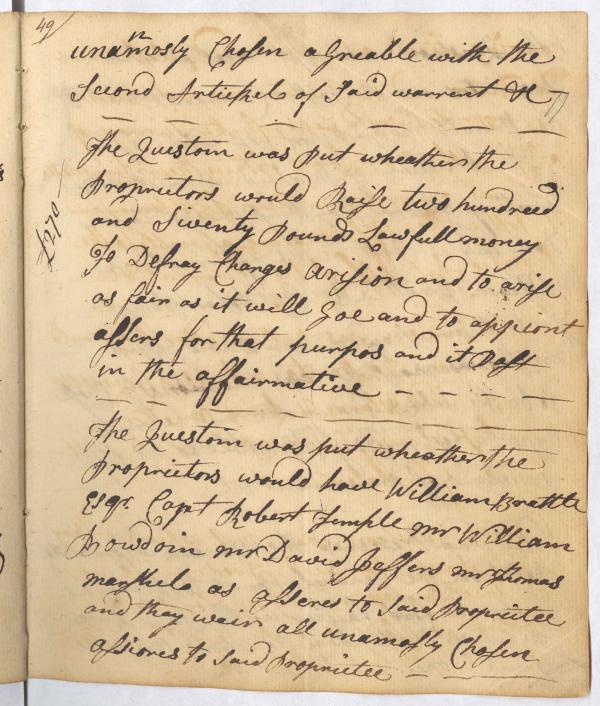 49
unanmosly Chosen aGreable with the
Second Artickel of Said warrent &c
The Questoin was put wheather the
Proprietors would Raise two hundreed
and Siventy Pounds Lawfull money
£270
To Defray Charges arision and to arise
as fair as it will Goe and to appoint
assers for that purpos and it Past
in the affairmative
The Questoin was put wheather the
Proprietors would have William Brattle
Esqr. Capt Robert Temple mr William
Bowdoin mr David Jeffers mr Thomas
marshel as asseres to Said Proprietee
and thay wair all unamosly Chosen
assiores to Said Proprietee